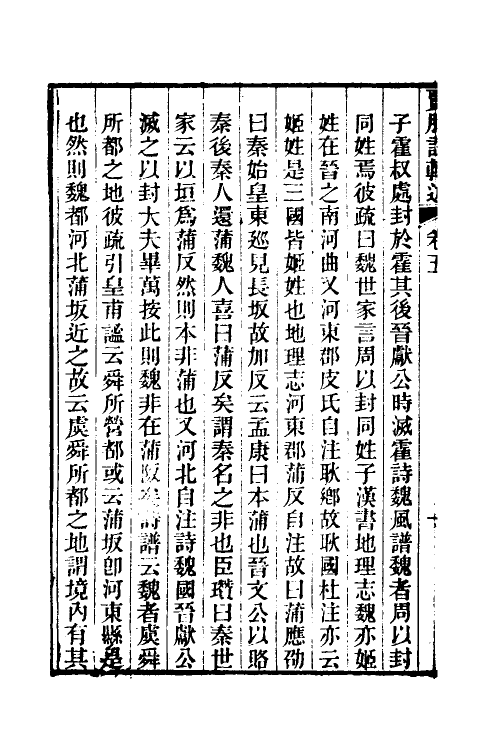 賈服註輯述 卷五
子霍叔處封於霍其後晉獻公時滅霍詩魏風譜魏者周以封
同姓焉彼疏曰魏世家言周以封同姓子漢書地理志魏亦姬
姓在晉之南河曲又河東郡皮氏自注耿鄉故耿國杜注亦云
姬姓是三國皆姬姓也地理志河東郡蒲反自注故曰蒲應劭
曰秦始皇東巡見長坂故加反云孟康曰本蒲也晉文公以賂
秦後秦人還蒲魏人喜曰蒲反矣謂秦名之非也臣瓚曰秦世
家云以垣爲蒲反然則本非蒲也又河北自注詩魏國晉獻公
滅之以封大夫畢萬按此則魏非在蒲阪矣詩譜云魏者虞舜
所都之地彼疏引皇甫謐云舜所營都或云蒲坂卽河東縣是
也然則魏都河北蒲坂近之故云虞舜所都之地謂境內有其